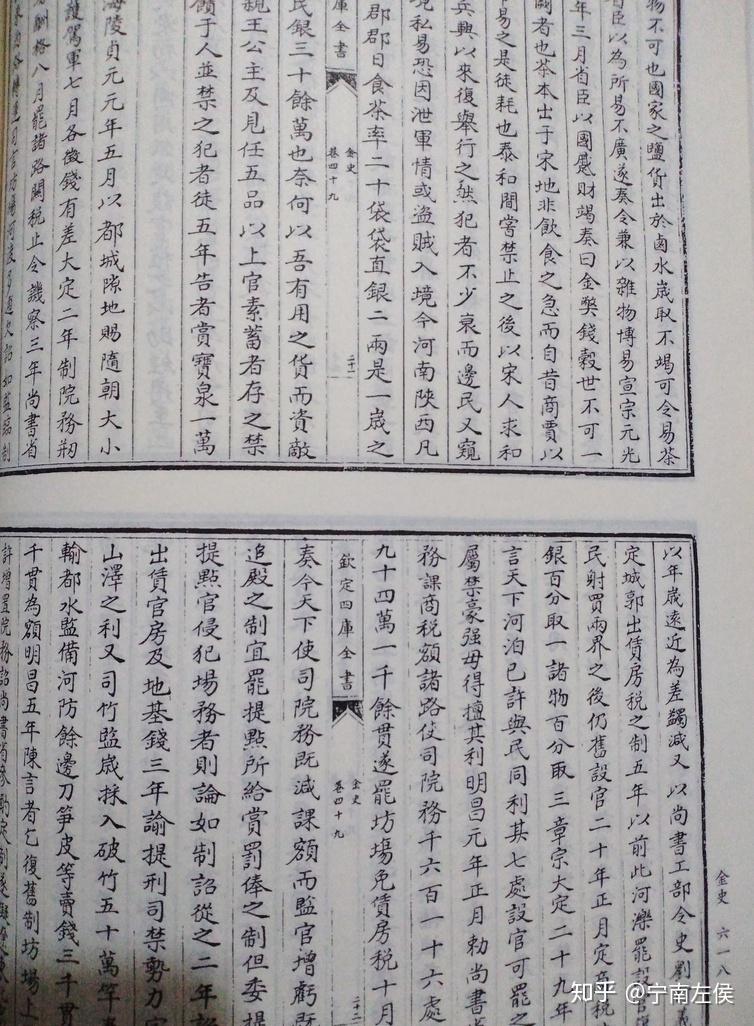 物不可也國家之鹽貨出於鹵水歲取不竭可令易茶
省臣以為所易不廣遂奏令兼以雜物博易宣宗元光
年三月省臣以國蹙財竭奏曰金幣錢穀世不可一
闕者也茶本出于宋地非飲食之急而自昔商賈以
易之是徒耗也泰和間嘗禁止之後以宋人求和
兵興以來復舉行之然犯者不少衰而邊民又窺
境私易恐因泄軍情或盗賊入境今河南陜西凡
郡郡日食茶率二十袋袋直銀二兩是一歲之
庫全書
金史
卷四十九
二十一
民銀三十餘萬也奈何以吾有用之貨而資敵
親王公主及見任五品以上官素蓄者存之禁
饋于人並禁之犯者徒五年告者賞寶泉一萬
海陵貞元元年五月以都城隙地賜隨朝大小
護駕軍七月各徵錢有差大定二年制院務刱
酬格八月罷諸路關税止令譏察三年尚書省
以年歲遠近為差蠲減又以尚書工部令史劉
定城郭出賃房税之制五年以前此河濼罷設
民射買兩界之後仍舊設官二十年正月定商税
銀百分取一諸物百分取三章宗大定二十九年
言天下河泊已許與民同利其七處設官可罷之
屬禁豪强毋得擅其利明昌元年正月勅尚書省
務課商税額諸路使司院務千六百一十六處
九十四萬一千餘貫遂罷坊場免賃房税十月
欽定四庫全書
金史
卷四十九
二十二
奏今天下使司院務既減課額而監官增虧既
追殿之制宜罷提點所給賞罰俸之制但委提
提點官侵犯場務者則論如制詔從之二年
出賃官房及地基錢三年諭提刑司禁勢力家
山澤之利又司竹監歲採入破竹五十萬竿
輸都水監備河防餘邊刀笋皮等賣錢三千貫
千貫為額明昌五年陳言者乞復舊制坊場上
許增置院務詔尚書省
金史
六一八
知乎 @宁南左侯